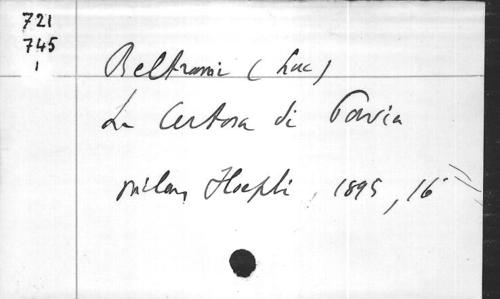 721
745
1
Beltrami (Luc)
La Certosa di Pavia
Milan, Hoepli, 1895, 16°